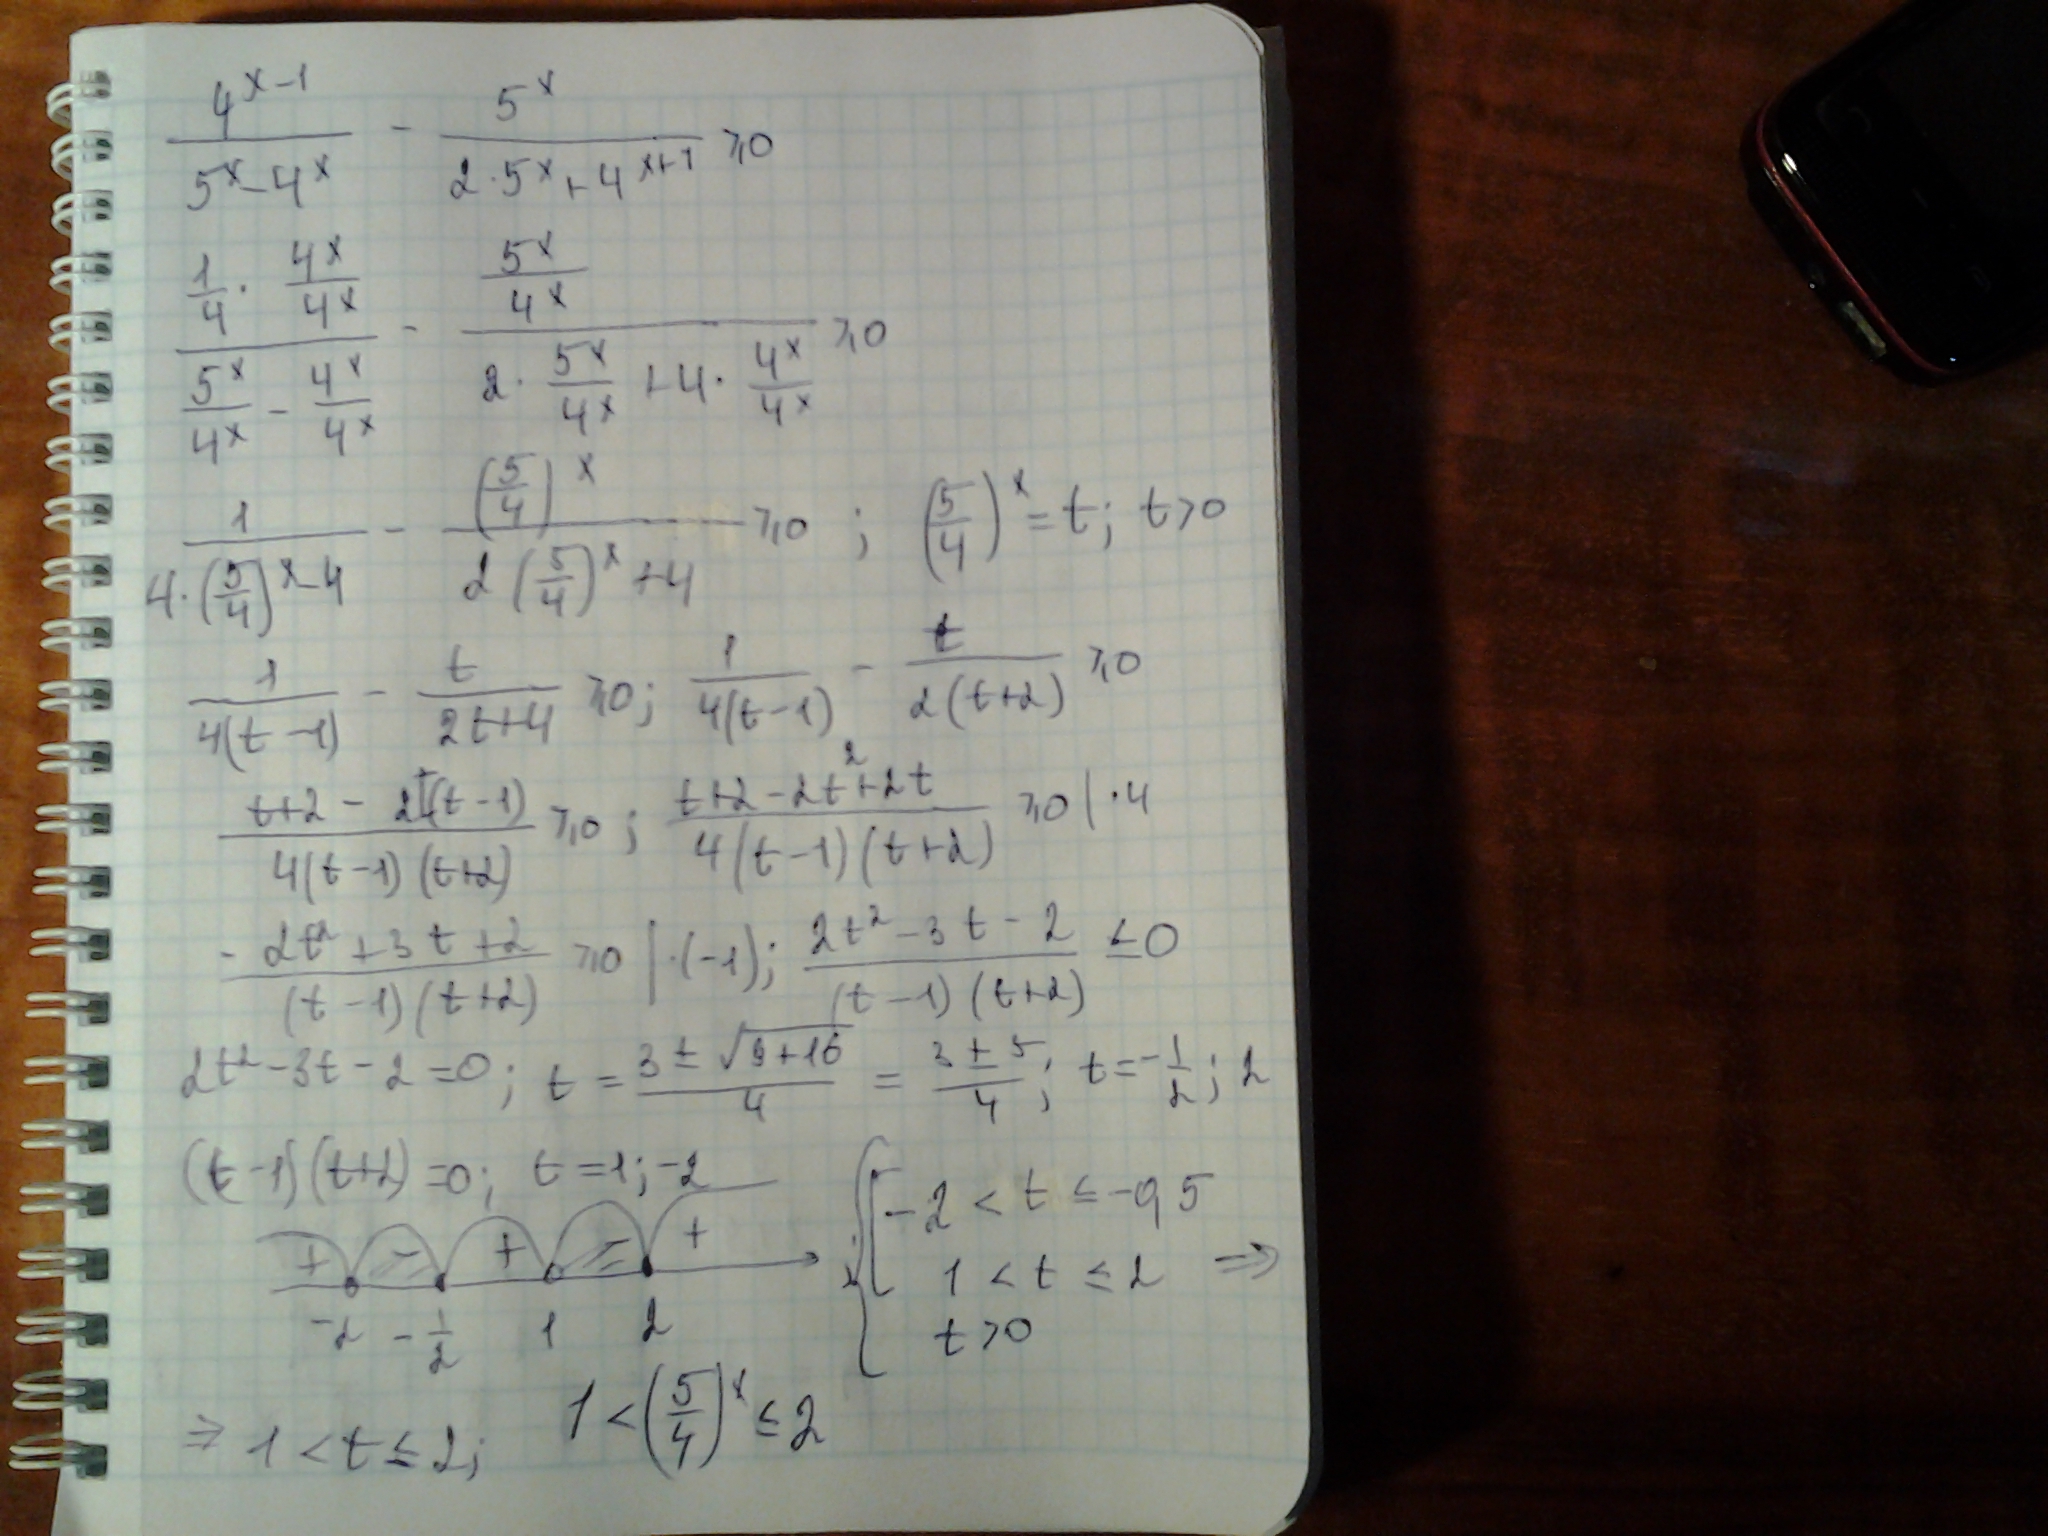 4^(x-1)/(5^x-4^x) - 5^x/(2·5^x+4^(x+1)) ⩾0
(1/4 · 4^x/4^x)/(5^x/4^x - 4^x/4^x) - (5^x/4^x)/(2·5^x/4^x +4·4^x/4^x) ⩾0
1/(4·(5/4)^x-4) - (5/4)^x/(2(5/4)^x+4) ⩾0 ; (5/4)^x = t; t>0
1/(4(t-1)) - t/(2t+4) ⩾0; 1/(4(t-1)) - t/(2(t+2)) ⩾0
(t+2 - 2t(t-1))/(4(t-1)(t+2)) ⩾0; (t+2-2t^2+2t)/(4(t-1)(t+2)) ⩾0 | ·4
(-2t^2+3t+2)/((t-1)(t+2)) ⩾0 | ·(-1); (2t^2-3t-2)/((t-1)(t+2)) ≤0
2t^2-3t-2=0; t = (3±√(9+16))/4 = (3±5)/4; t=-1/2; 2
(t-1)(t+2)=0; t=1; -2
+ - + - +
-2 -1/2 1 2
{ [ -2 < t ≤ -0,5
1 < t ≤ 2 ⇒
t>0
⇒ 1 < t ≤ 2; 1 < (5/4)^x ≤ 2